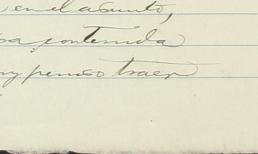 en el asunto,
contenida
pienso traer